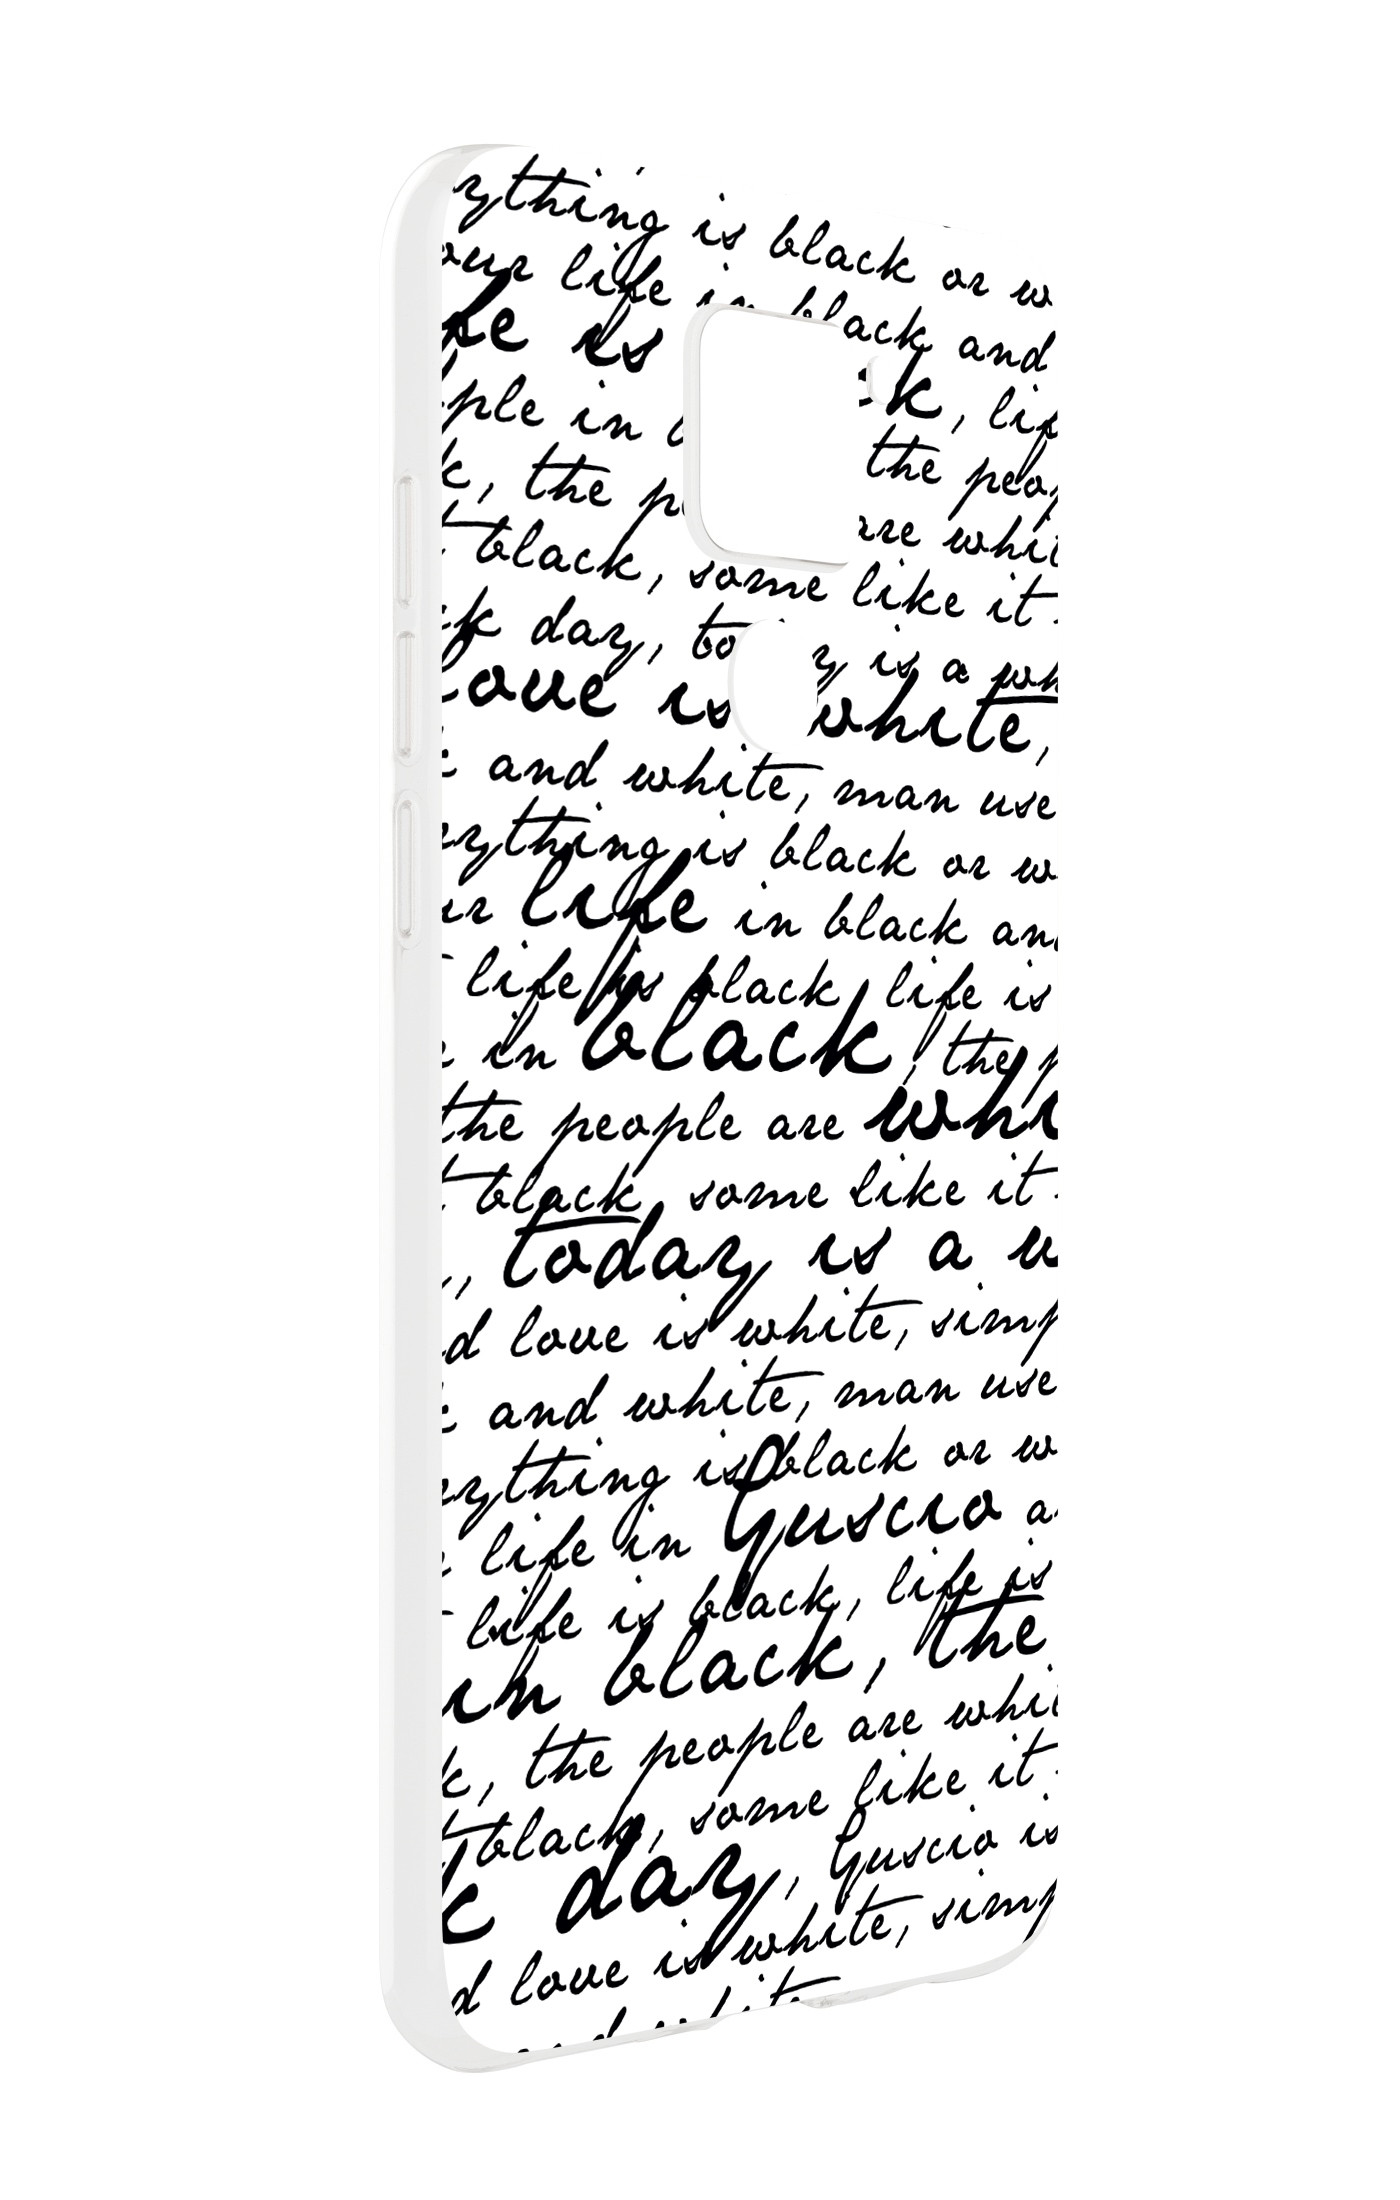 ything is black or w
our life in black and
fe is k, lif
ple in the peop
k, the p are whit
t black, some like it
ck day, to y is a wh
love is white,
k and white, man use
rything is black or w
ur life in black and
life is black, life is
in black, the p
the people are whi
t black, some like it
, today is a w
d love is white, simp
k and white, man use
rything is black or w
life in Guscio a
life is black, life is
in black, the
k, the people are whit
t black, some like it
k day, Guscio is
d love is white, simp
and white